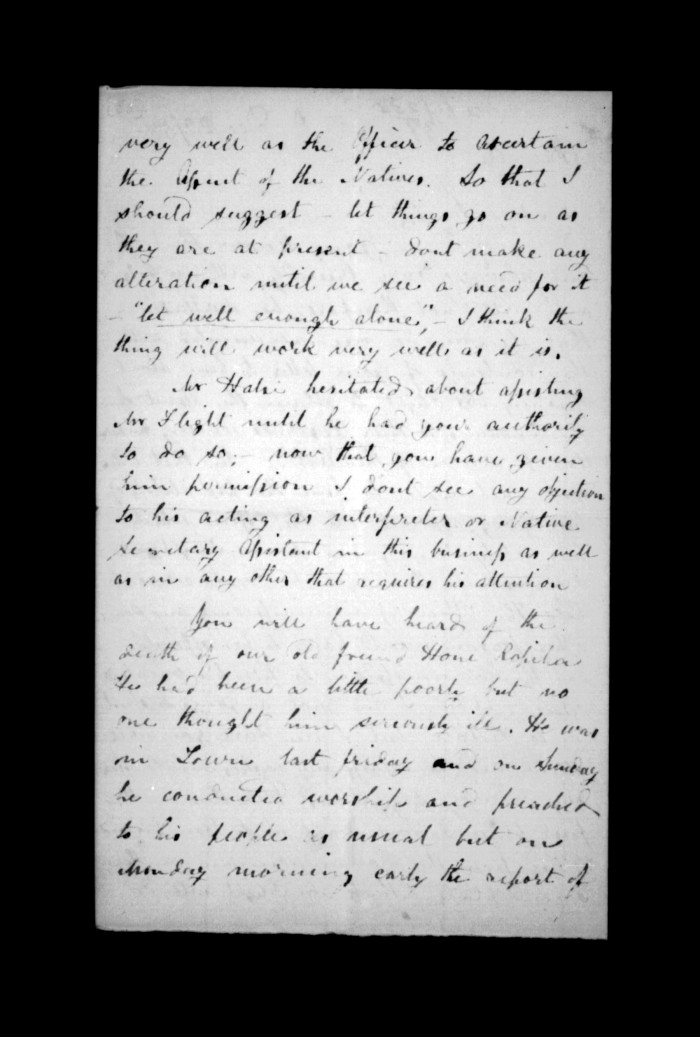 very well as the Officer to ascertain
the Assent of the Natives. So that I
should suggest - let things go on as
they are at present - dont make any
alteration until we see a need for it
- "let well enough alone", - I think the
thing will work very well as it is.
Mr Halse hesitated about assisting
Mr Flight until he had your authority
to do so; - now that you have given
him permission I dont see any objection
to his acting as interpreter or Native
Secretary Assistant in this business as well
as in any other that requires his attention
You will have heard of the
death of our old friend Hone Ropiha
He had been a little poorly but no
one thought him seriously ill. He was
in Town last friday and on Sunday
he conducted worship and preached
to his people as usual but on
Monday morning early the report of